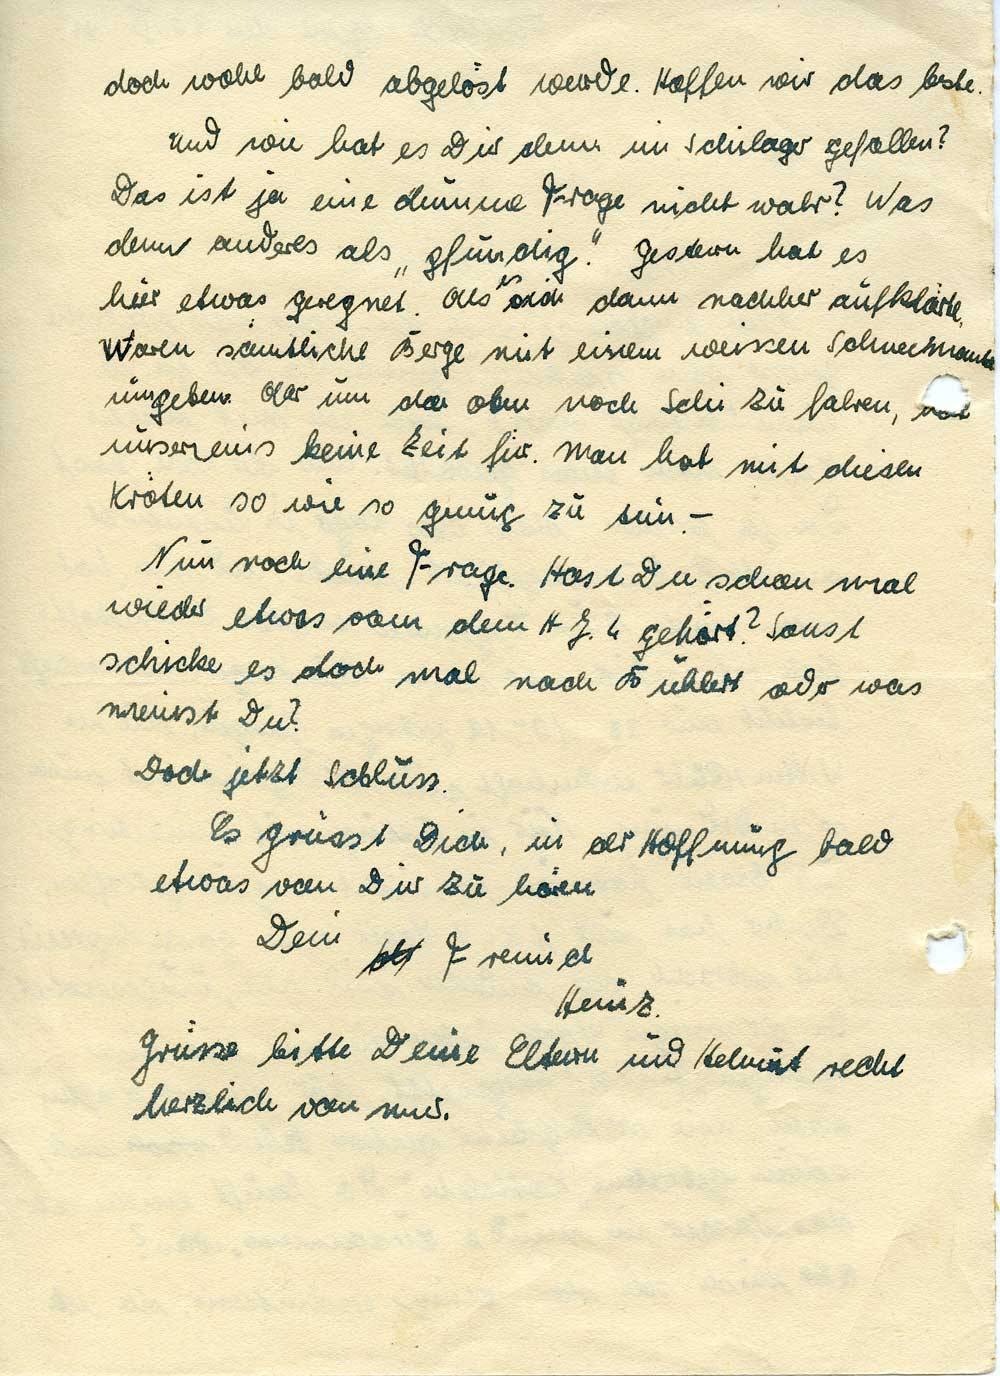 doch wohl bald abgelöst werde. Hoffen wir das beste.
Und wie hat es Dir denn im Schilager gefallen?
Das ist ja eine dumme Frage nicht wahr? Was
denn anderes als „pfundig“. Gestern hat es
hier etwas geregnet. Als es sich dann nachher aufklärte,
waren sämtliche Berge mit einem weissen Schneemantel
umgeben. Aber um da oben noch Schi zu fahren, hat
unsereins keine Zeit für. Man hat mit diesen
Kröten so wie so genug zu tun –
Nun noch eine Frage. Hast Du schon mal
wieder etwas von dem gehört? Sonst
schicke es doch mal nach oder was
meinst Du?
Doch jetzt Schluss.
Es grüsst Dich, in der Hoffnung bald
etwas von Dir zu hören
Dein Freund
Heinz.
Grüsse bitte Deine Eltern und Helmut recht
herzlich von mir.